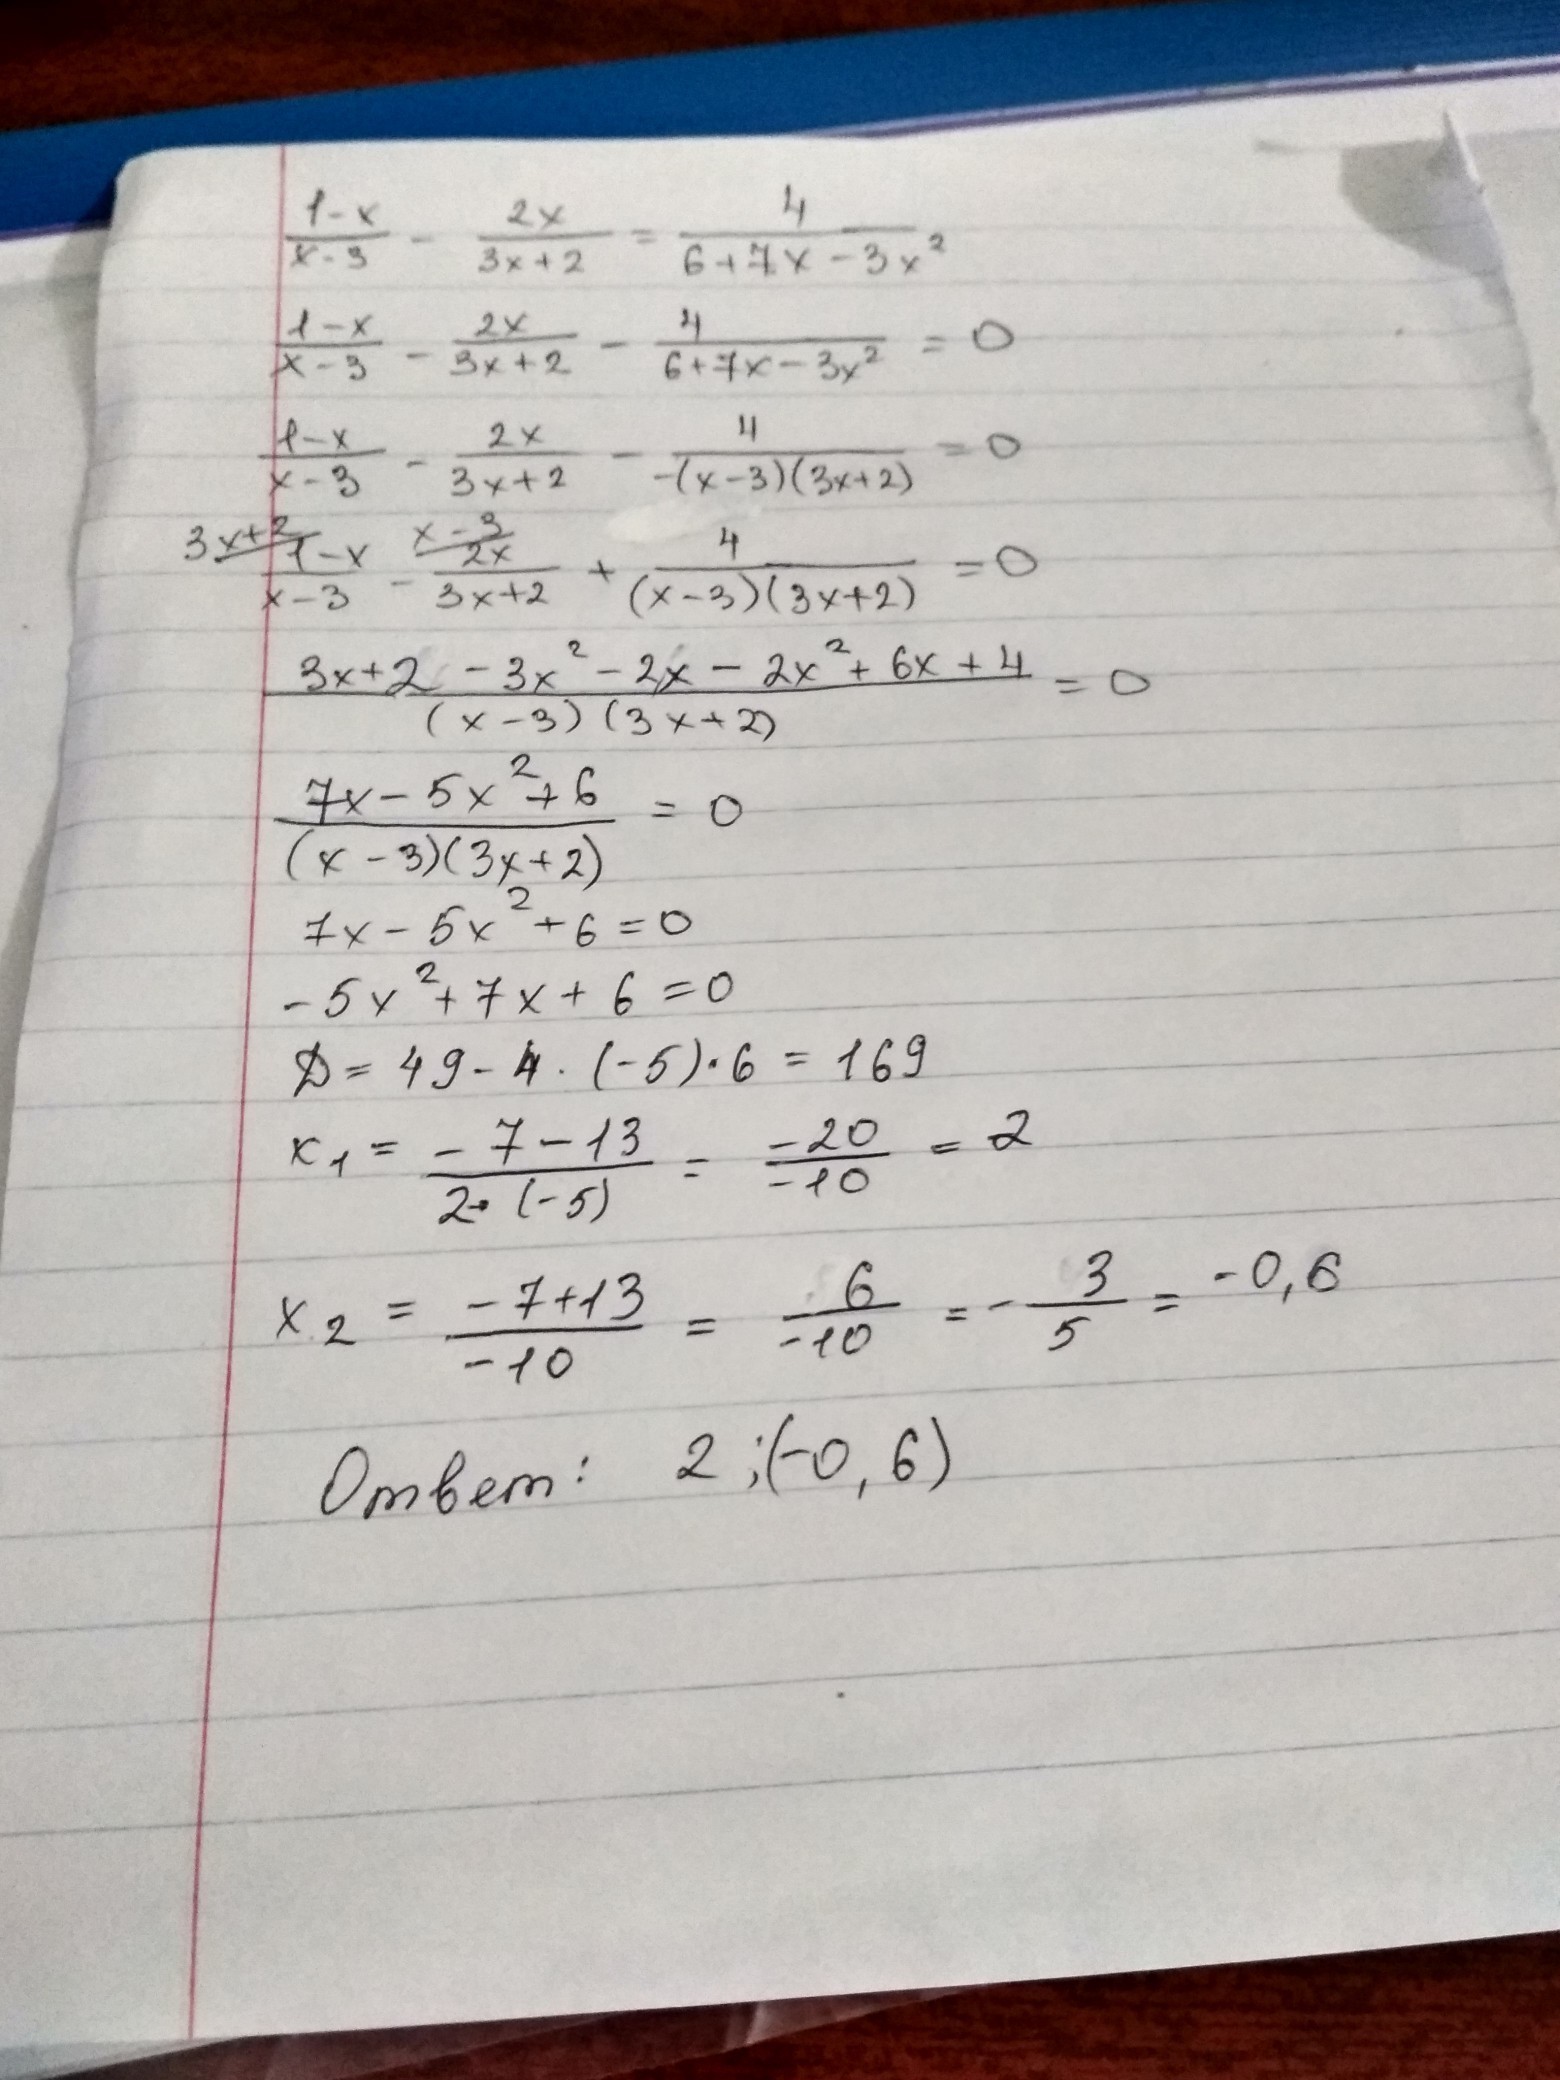 (1-x)/(x-3) - 2x/(3x+2) = 4/(6+7x-3x²)
(1-x)/(x-3) - 2x/(3x+2) - 4/(6+7x-3x²) = 0
(1-x)/(x-3) - 2x/(3x+2) - 4/(-(x-3)(3x+2)) = 0
3x+2/ (1-x)/(x-3) - x-3/ 2x/(3x+2) + 4/((x-3)(3x+2)) = 0
(3x+2-3x²-2x-2x²+6x+4)/((x-3)(3x+2)) = 0
(7x-5x²+6)/((x-3)(3x+2)) = 0
7x-5x²+6=0
-5x²+7x+6=0
D=49-4·(-5)·6=169
x₁ = (-7-13)/(2·(-5)) = -20/-10 = 2
x₂ = (-7+13)/-10 = 6/-10 = -3/5 = -0,6
Ответ: 2;(-0,6)